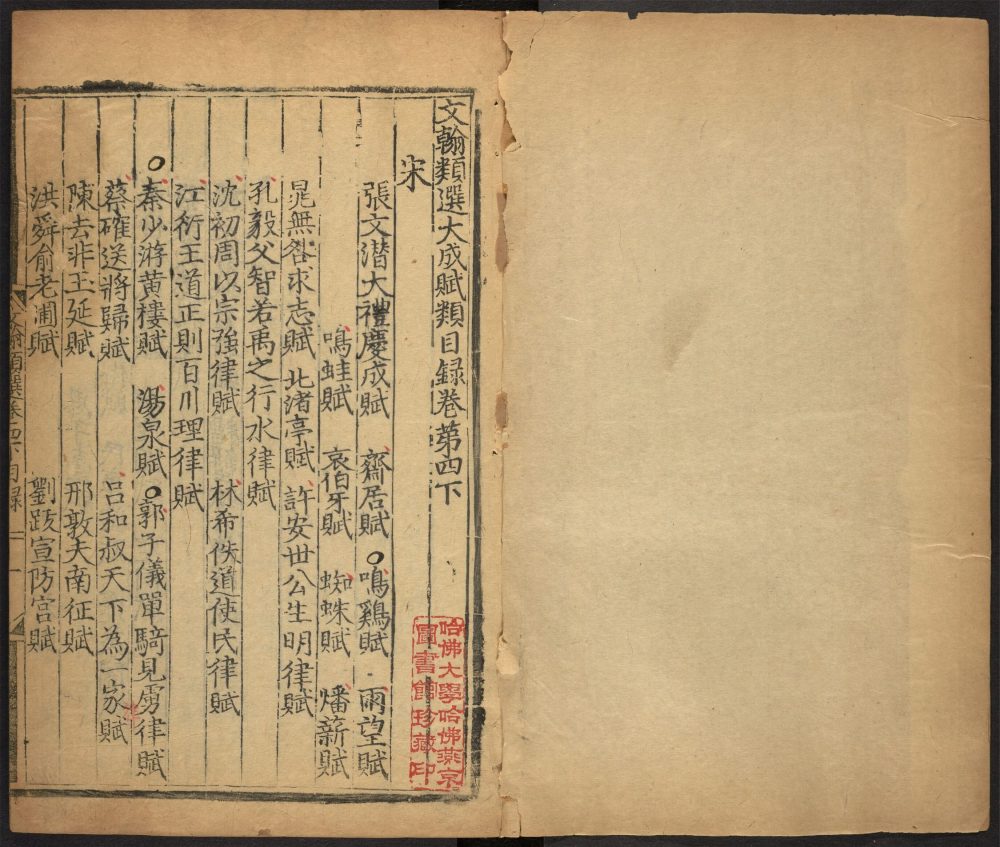 文翰類選大成賦類目録卷第四下
宋
張文潛大禮慶成賦 齋居賦 鳴鷄賦 雨望賦
鳴蛙賦 哀伯牙賦 蜘蛛賦 燔薪賦
晁無咎求志賦 北渚亭賦 許安世公生明律賦
孔毅父智若禹之行水律賦
沈初周以宗強律賦 林希佚道使民律賦
江衍王道正則百川理律賦
秦少游黄樓賦 湯泉賦 郭子儀單騎見虜律賦
蔡確送將歸賦 呂和叔天下為一家賦
陳去非玉延賦 邢敦夫南征賦
洪舜俞老圃賦 劉跂宣防宮賦
哈佛大學哈佛燕京
圖書館珍藏印